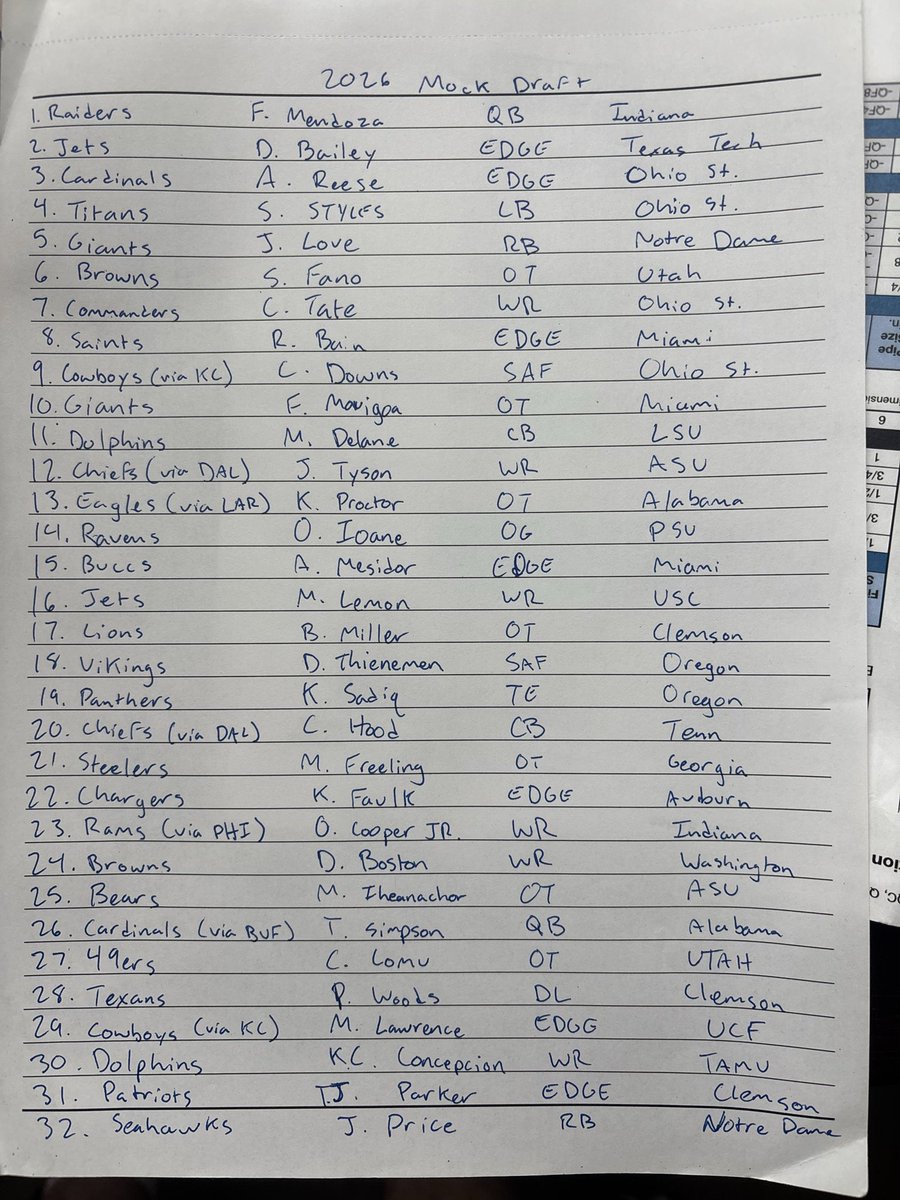 2026 Mock Draft
1. Raiders F. Mendoza QB Indiana
2. Jets D. Bailey EDGE Texas Tech
3. Cardinals A. Reese EDGE Ohio St.
4. Titans S. STYLES LB Ohio St.
5. Giants J. Love RB Notre Dame
6. Browns S. Fano OT Utah
7. Commanders C. Tate WR Ohio St.
8. Saints R. Bain EDGE Miami
9. Cowboys (via KC) C. Downs SAF Ohio St.
10. Giants F. Mauigoa OT Miami
11. Dolphins M. Delane CB LSU
12. Chiefs (via DAL) J. Tyson WR ASU
13. Eagles (via LAR) K. Proctor OT Alabama
14. Ravens O. Ioane OG PSU
15. Buccs A. Mesidor EDGE Miami
16. Jets M. Lemon WR USC
17. Lions B. Miller OT Clemson
18. Vikings D. Thienemen SAF Oregon
19. Panthers K. Sadiq TE Oregon
20. Chiefs (via DAL) C. Hood CB Tenn
21. Steelers M. Freeling OT Georgia
22. Chargers K. Faulk EDGE Auburn
23. Rams (via PHI) O. Cooper JR. WR Indiana
24. Browns D. Boston WR Washington
25. Bears M. Iheanachor OT ASU
26. Cardinals (via BUF) T. Simpson QB Alabama
27. 49ers C. Lomu OT UTAH
28. Texans P. Woods DL Clemson
29. Cowboys (via KC) M. Lawrence EDGE UCF
30. Dolphins K.C. Concepcion WR TAMU
31. Patriots T.J. Parker EDGE Clemson
32. Seahawks J. Price RB Notre Dame
-QF8
-QF4
Pipe
Size
in.
6
1
3/4
1/2